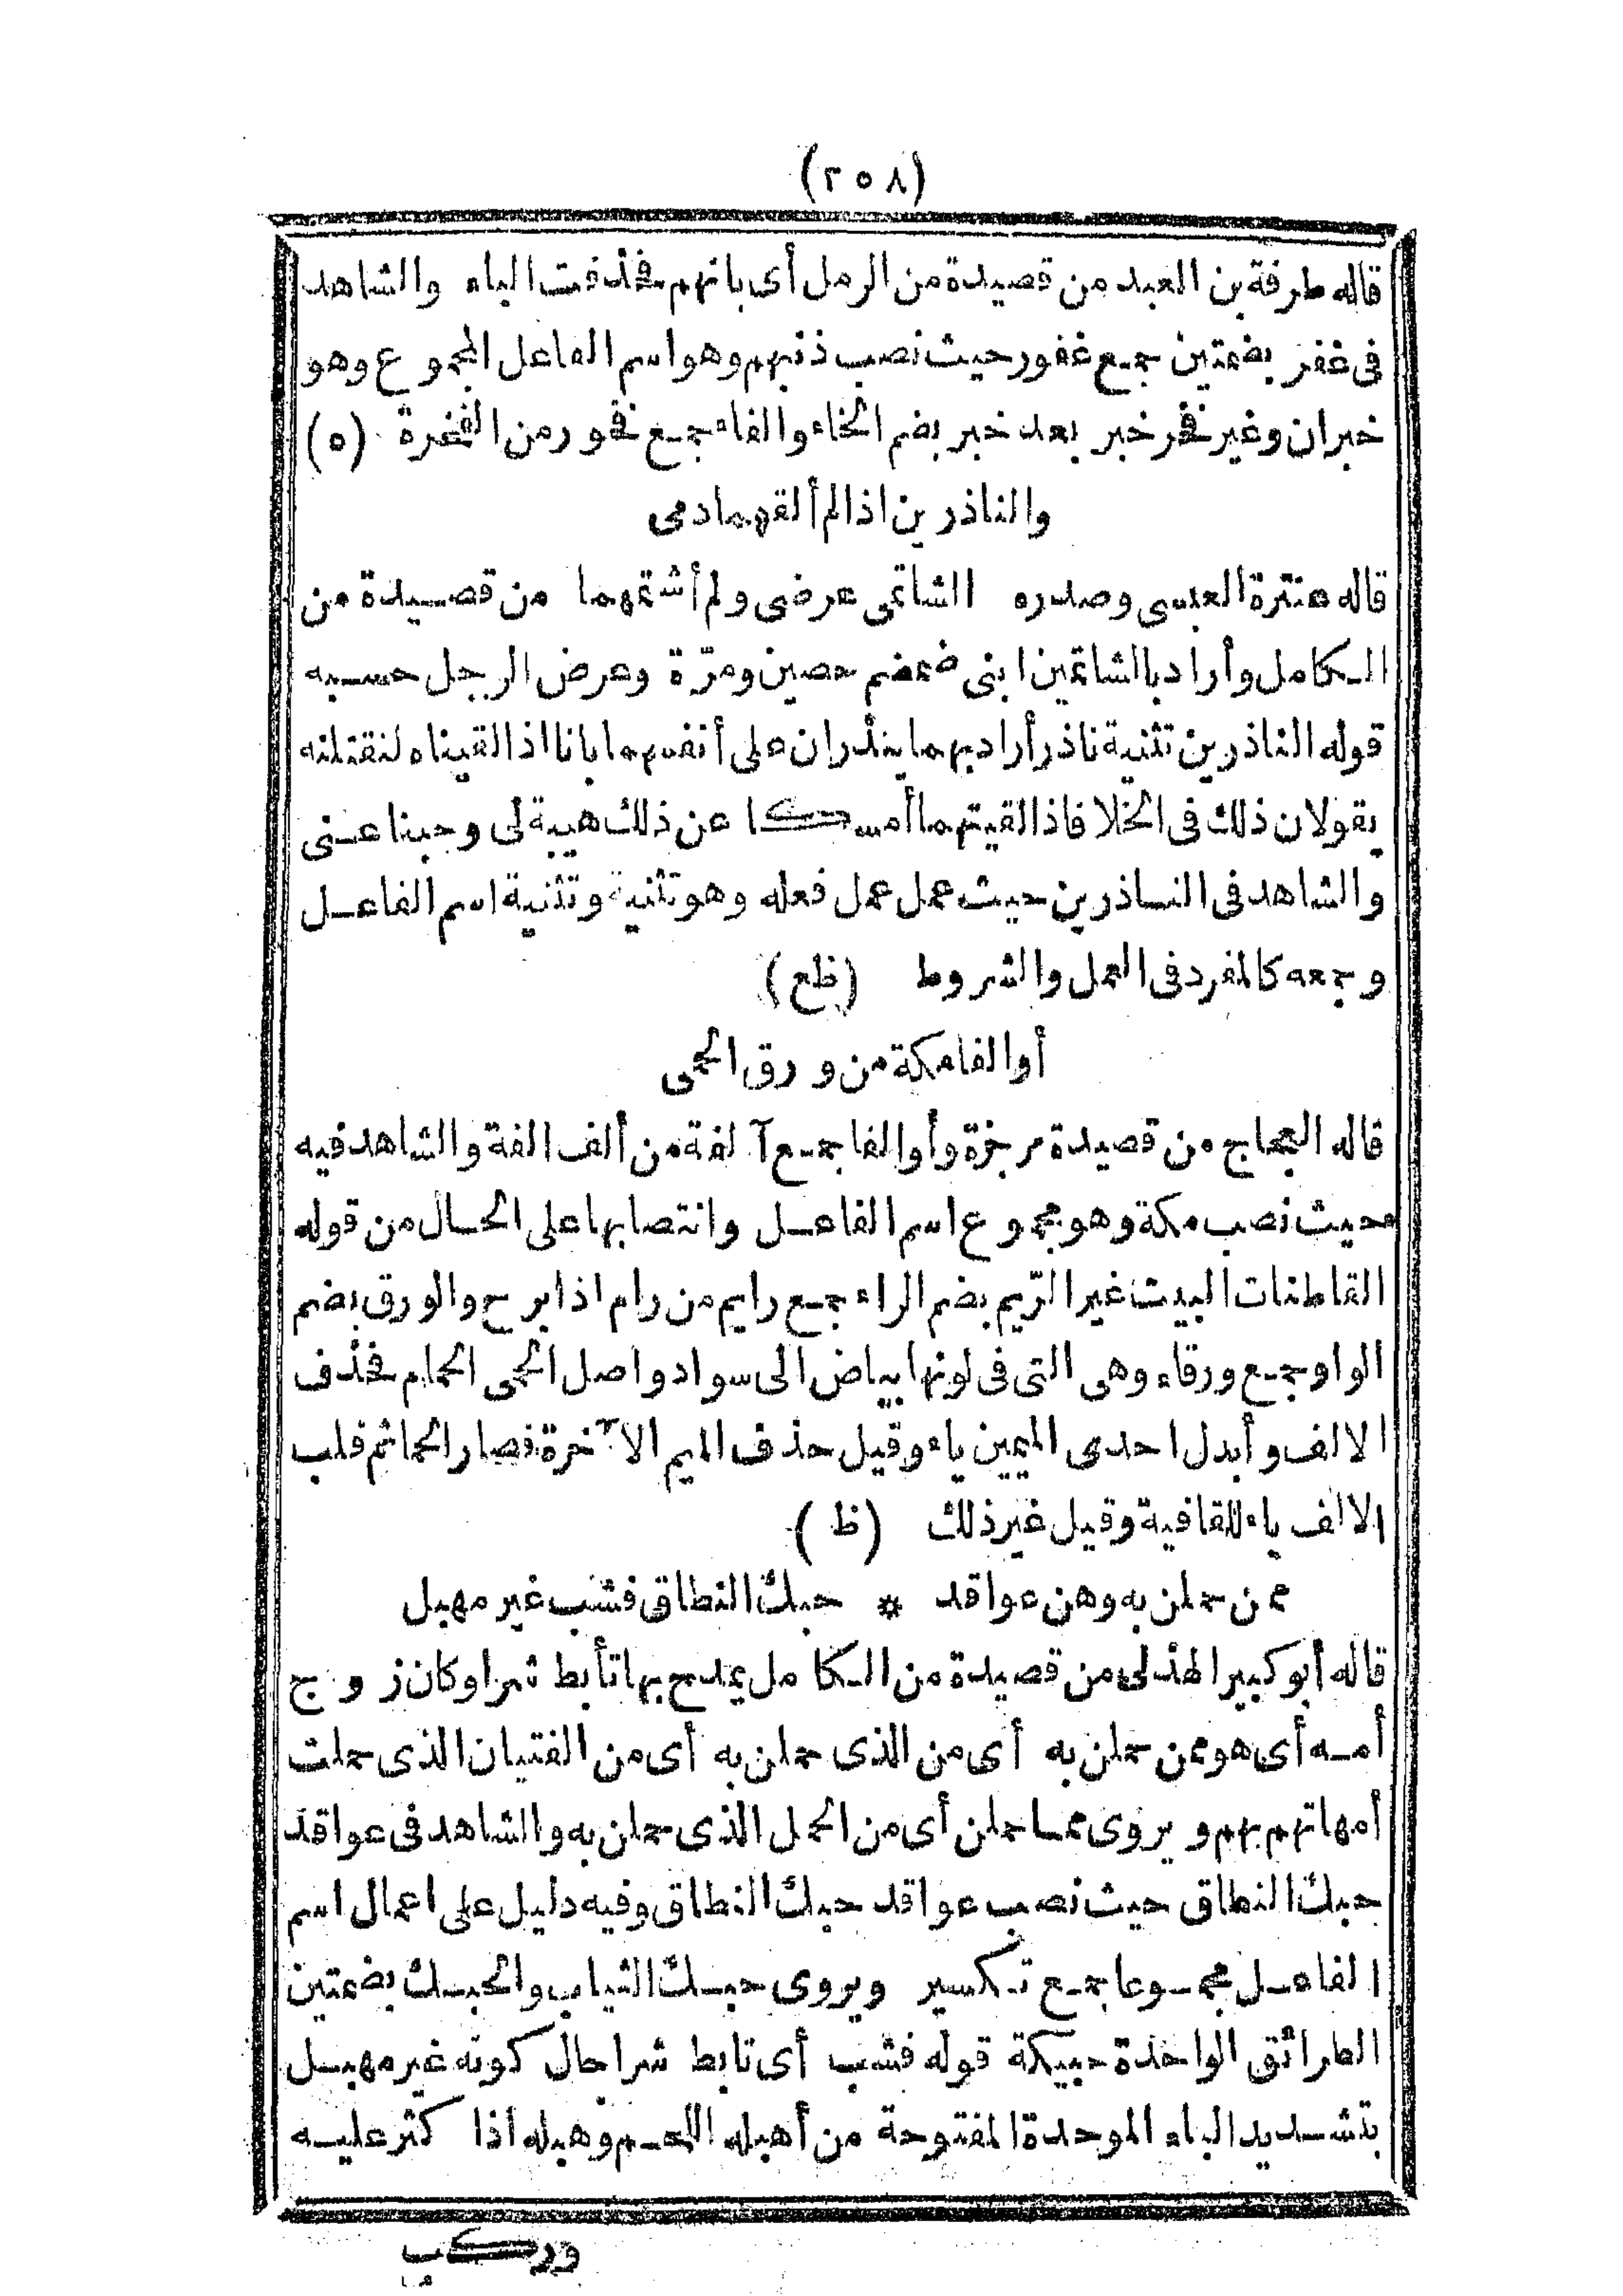 (٢٥٨)
قاله طرفة بن العبد من قصيدة من الرمل أى بانهم فحذفت الباء والشاهد
فى غفر بضمتين جمع غفور حيث نصب ذنبهم وهو اسم الفاعل المجموع وهو
خبران وغير فخر خبر بعد خبر بضم الخاء والفاء جمع فخور من الفخرة (ه)
والناذرين اذا لم ألقهما دمى
قاله عنترة العبسى وصدره الشاتمى عرضى ولم أشتمهما من قصيدة من
الكامل وأراد بالشاتمين ابنى ضمضم حصين ومرّة وعرض الرجل حسبه
قوله الناذرين تثنية ناذر أراد بهما ينذران على أنفسهما بانا اذا لقيناه لنقتلنه
يقولان ذلك فى الخلا فاذا لقيتهما أمسكا عن ذلك هيبة لى وجبنا عنى
والشاهد فى الناذرين حيث عمل عمل فعله وهو تثنية وتثنية اسم الفاعل
وجمعه كالمفرد فى العمل والشروط (ظع)
أوالفا مكة من ورق الحمى
قاله العجاج من قصيدة مرجزة وأوالفا جمع آلفة من ألف الفة والشاهد فيه
حيث نصب مكة وهو مجموع اسم الفاعل وانتصابها على الحال من قوله
القاطنات البيت غير الرّيم بضم الراء جمع رايم من رام اذا برح والورق بضم
الواو جمع ورقاء وهى التى فى لونها بياض الى سواد واصل الحمى الحمام فحذف
الالف وأبدل احدى الميمين ياء وقيل حذف الميم الآخرة فصار الحما ثم قلب
الالف ياء للقافية وقيل غير ذلك (ظ)
ممن حملن به وهن عواقد * حبك النطاق فشب غير مهبل
قاله أبو كبير الهذلى من قصيدة من الكامل يمدح بها تأبط شرا وكان زوج
أمه أى هو ممن حملن به أى من الذى حملن به أى من الفتيان الذى حملت
أمهاتهم بهم ويروى مما حملن أى من الحمل الذى حملن به والشاهد فى عواقد
حبك النطاق حيث نصب عواقد حبك النطاق وفيه دليل على اعمال اسم
الفاعل مجموعا جمع تكسير ويروى حبك الثياب والحبك بضمتين
الطرائق الواحدة حبيكة قوله فشب أى تابط شرا حال كونه غير مهبل
بتشديد الباء الموحدة المفتوحة من أهبله اللحم وهبله اذا كثر عليه
وركب